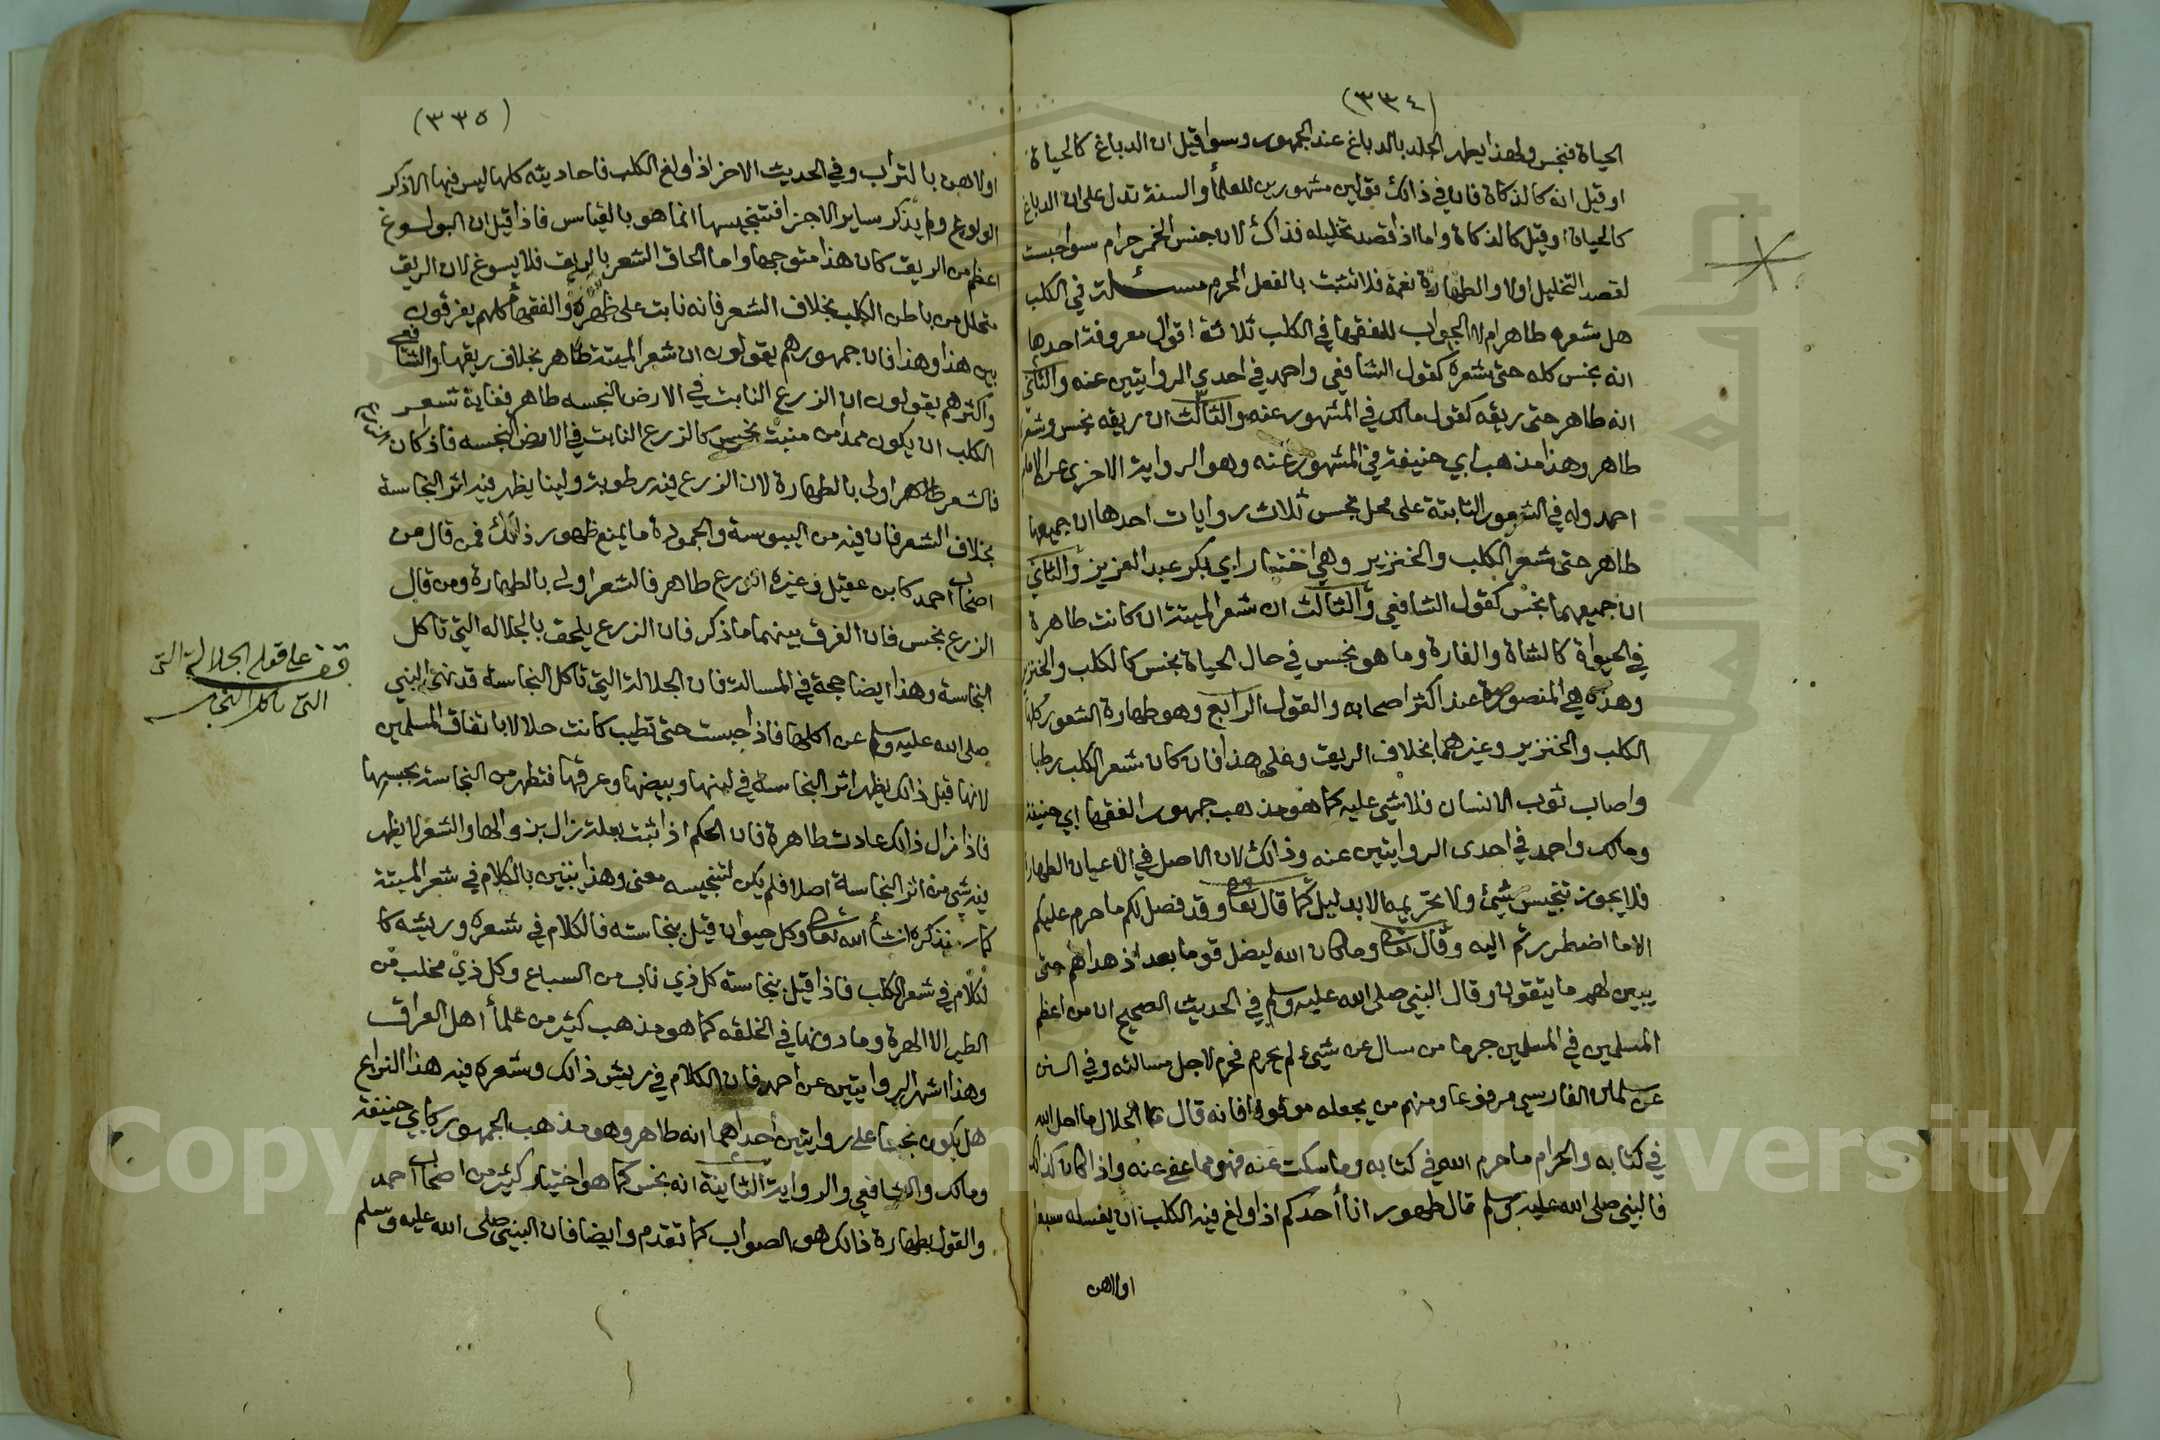 (٣٣٤)
الحياة فنجس ولهذا يطهر الجلد بالدباغ عند الجمهور وسوا قيل ان الدباغ كالحياة
او قيل انه كالذكاة فان في ذالك قولين مشهورين للعلمأ والسنة تدل على ان الدباغ
كالحياة او قيل كالذكاة واما اذا قصد تخليله فذاك لان جنس الخمر حرام سوا حبست
لقصد التخليل اولا والطهارة نعمة فلا تثبت بالفعل المحرم مسئلة في الكلب
هل شعره طاهر ام لا الجواب للفقها في الكلب ثلاثة اقوال معروفة احدها
انه نجس كله حتى شعره كقول الشافعي واحمد في احدي الروايتين عنه والثاني
انه طاهر حتى ريقه كقول مالك في المشهور عنه والثالث ان ريقه نجس وشعره
طاهر وهذا مذهب ابي حنيفة في المشهور عنه وهو الرواية الاخرى عن الامام
احمد وله في الشعور النابتة على محل نجس ثلاث روايات احدها ان جميعها
طاهر حتى شعر الكلب والخنزير وهي اختيار ابي بكر عبد العزيز والثاني
ان جميعهما نجس كقول الشافعي والثالث ان شعر الميتة ان كانت طاهرة
في الحيواة كالشاة والفارة وما هو نجس في حال الحياة نجس كالكلب والخنزير
وهذه هي المنصورة عند اكثر اصحابه والقول الرابع وهو طهارة الشعور كلها
الكلب والخنزير وغيرهما بخلاف الريق وعلى هذا فان كان شعر الكلب رطبا
واصاب ثوب الانسان فلا شي عليه كما هو مذهب جمهور الفقها ابي حنيفة
ومالك واحمد في احدى الروايتين عنه وذالك لان الاصل في الاعيان الطهارة
فلا يجوز تنجيس شيئ ولا تحريمه الا بدليل كما قال تعا وقد فصل لكم ما حرم عليكم
الا ما اضطررتم اليه وقال تعا وما كان الله ليضل قوما بعد اذ هداهم حتى
يبين لهم ما يتقون وقال النبي صلى الله عليه وسلم في الحديث الصحيح ان من اعظم
المسلمين في المسلمين جرما من سال عن شيئ لم يحرم فحرم لاجل مسالته وفي السنن
عن سلمان الفارسي مرفوعا ومنهم من يجعله موقوفا انه قال الحلال ما احل الله
في كتابه والحرام ما حرم الله في كتابه وما سكت عنه فهو مما عفى عنه واذا كان كذالك
فالنبي صلى الله عليه وسلم قال طهور انا أحدكم اذا ولغ فيه الكلب ان يغسله سبعا
اولاهن
(٣٣٥)
اولاهن بالتراب وفي الحديث الاخر اذا ولغ الكلب فاحاديثه كلها ليس فيها الا ذكر
الولوغ ولم يذكر ساير الاجزا فتنجيسها انما هو بالقياس فاذا قيل ان البول
اعظم من الريق كان هذا متوجها واما الحاق الشعر بالريق فلا يسوغ لان الريق
متحلل من باطن الكلب بخلاف الشعر فانه نابت على ظهره والفقهأ كلهم يفرقون
بين هذا وهذا فان جمهورهم يقولون ان شعر الميتة طاهر بخلاف ريقها والشافعي
واكثرهم يقولون ان الزرع النابت في الارض النجسه طاهر فغاية شعر
الكلب ان يكون من منبت نجس كالزرع النابت في الارض النجسه فاذا كان
فالشعر طاهر اولى بالطهارة لان الزرع فيه رطوبة ولينا يظهر فيه اثر النجاسة
بخلاف الشعر فان فيه من اليبوسة والجمودة ما يمنع ظهور ذالك فمن قال من
اصحاب احمد كابن عقيل وغيره الزرع طاهر فالشعر اولى بالطهارة ومن قال
الزرع نجس فان الفرق بينهما ما ذكر فان الزرع يلحق بالجلاله التي تاكل
النجاسة وهذا ايضا حجة في المسالة فان الجلالة التي تاكل النجاسة قد نهى النبي
صلى الله عليه وسلم عن اكلها فاذا حبست حتى تطيب كانت حلالا باتفاق المسلمين
لانها قبل ذالك يظهر اثر النجاسة في لبنها وبيضها وعرقها فتطهر من النجاسة بحبسها
فاذا زال ذالك عادت طاهرة فان الحكم اذا ثبت بعلة زال بزوالها والشعر لا يظهر
فيه شي من اثر النجاسة اصلا فلم يكن لتنجيسه معنى وهذا يتبين بالكلام في شعر الميتة
كما نذكره انشأ الله تعا وكل حيوان قيل بنجاسته فالكلام في شعره وريشه كا
لكلام في شعر الكلب فاذا قيل بنجاسة كل ذي ناب من السباع وكل ذي مخلب من
الطير الا الهرة وما دونها في الخلقه كما هو مذهب كثير من علمأ أهل العراق
وهذا اشهر الروايتين عن احمد فان الكلام في ريش ذالك وشعره فيه هذا النزاع
هل يكون نجسا على روايتين أحداهما انه طاهر وهو مذهب الجمهور كابي حنيفة
ومالك والشافعي والرواية الثانية انه نجس كما هو اختيار كثير من اصحاب احمد
والقول بطهارة ذالك هو الصواب كما تقدم وايضا فان النبي صلى الله عليه وسلم
قف على قوله الجلالة التي
التي تاكل النجاسة
Copyright © King Saud University